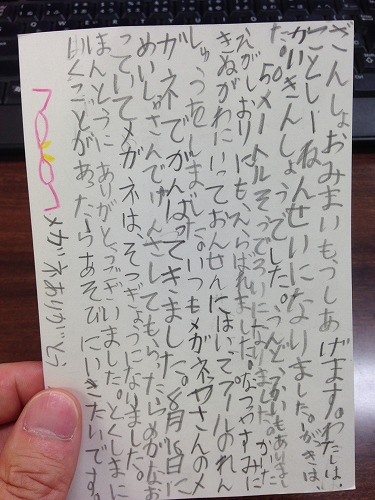 ざんしょおみまいもうしあげます。わたしは、
ことし一ねんせいになりました。一がっきは、
かいきんしょうでした。うんどうかいもありまし
た。50メートルそうで3いになりました。かった
えがしおりにもえらばれました。なつやすみに
きぬがわにいっておんせんにはいってプールのれん
しゅうをしました。いつもメガネやさんのメ
ガネでがんばってきました。8月18日に
めいしゃさんでけんさしてもらったらめがなお
っていてメガネはそつぎょうになりました。
ほんとうにありがとうございました。とくしまに
いくことがあったらあそびにいきたいです。
メガネありがとう